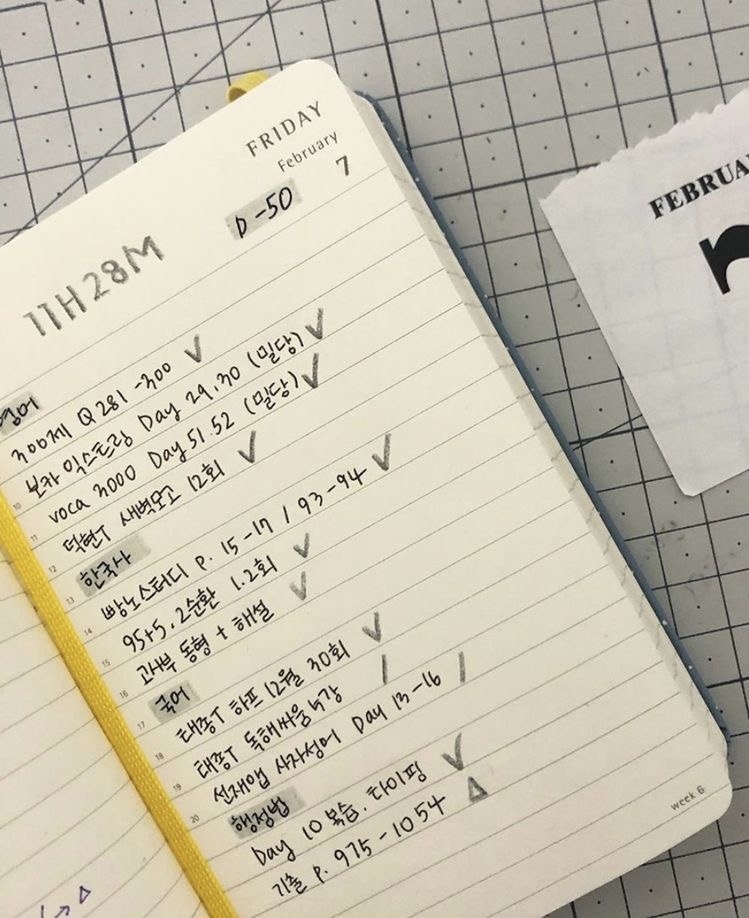 FRIDAY
February
7
D-50
11H28M
영어
300제 Q 281 -300 ✓
보카 익스트림 Day 29.30 (밀당) ✓
voca 3000 Day 51.52 (밀당) ✓
덕현T 새벽모고 12회 ✓
한국사
빵노스터디 p. 15-17 / 93-94 ✓
95+5. 2순환 1.2회 ✓
고사부 동형 + 해설 ✓
국어
태종T 하프 12월 30회 ✓
태종T 독해싸움 5강 /
선재앱 사자성어 Day 13-16 /
행정법
Day 10 복습. 타이핑 ✓
기출 p. 975-1054 △
10
11
12
13
14
15
16
17
18
19
20
week 6